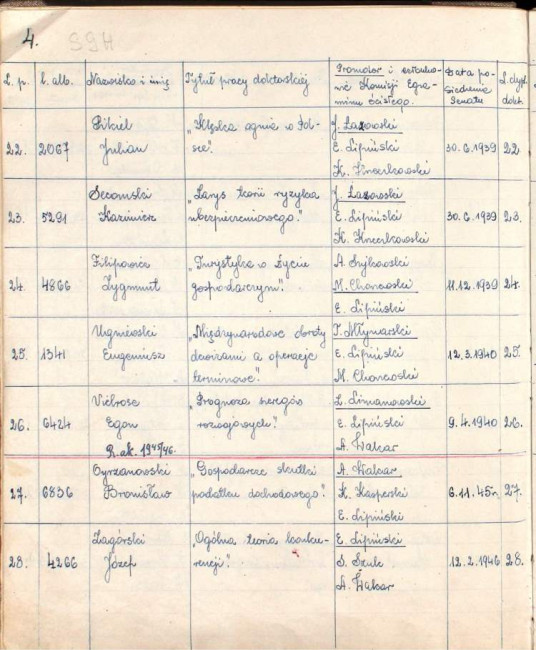 4. SGH
L. p. l. alb. Nazwisko i imię Tytuł pracy doktorskiej Promotor i członkowie Komisji Egzaminu ścisłego. Data posiedzenia Senatu L. dypl. dokt.
Pikiel „Klęska ognia w Pol- J. Łazowski
22. 2067 Julian sce”. E. Lipiński 30.6.1939 22
K. Krzeczkowski
Secomski „Zarys teorii ryzyka J. Łazowski
23. 5291 Kazimierz ubezpieczeniowego.” E. Lipiński 30.6.1939 23.
K. Krzeczkowski
Filipowicz „Turystyka w życiu A. Sujkowski
24. 4866 Zygmunt gospodarczym”. M. Chorzewski 11.12.1939 24.
E. Lipiński
„Międzynarodowe obroty F. Młynarski
25. 1341 Eugeniusz dewizami a operacje E. Lipiński 12.3.1940 25.
terminowe”. M. Chorzewski
Vielrose „Prognoza szeregów L. Limanowski
26. 6424 Egon rozwojowych”. E. Lipiński 9.4.1940 26.
R. ak. 1945/46. A. Wakar
Cyrzanowski „Gospodarcze skutki A. Wakar
27. 6836 Bronisław podatku dochodowego”. K. Kasperski 6.11.45r. 27.
E. Lipiński
Zagórski „Ogólna teoria konku- E. Lipiński
28. 4266 Józef rencji”. S. Szulc 12.2.1946 28.
A. Wakar